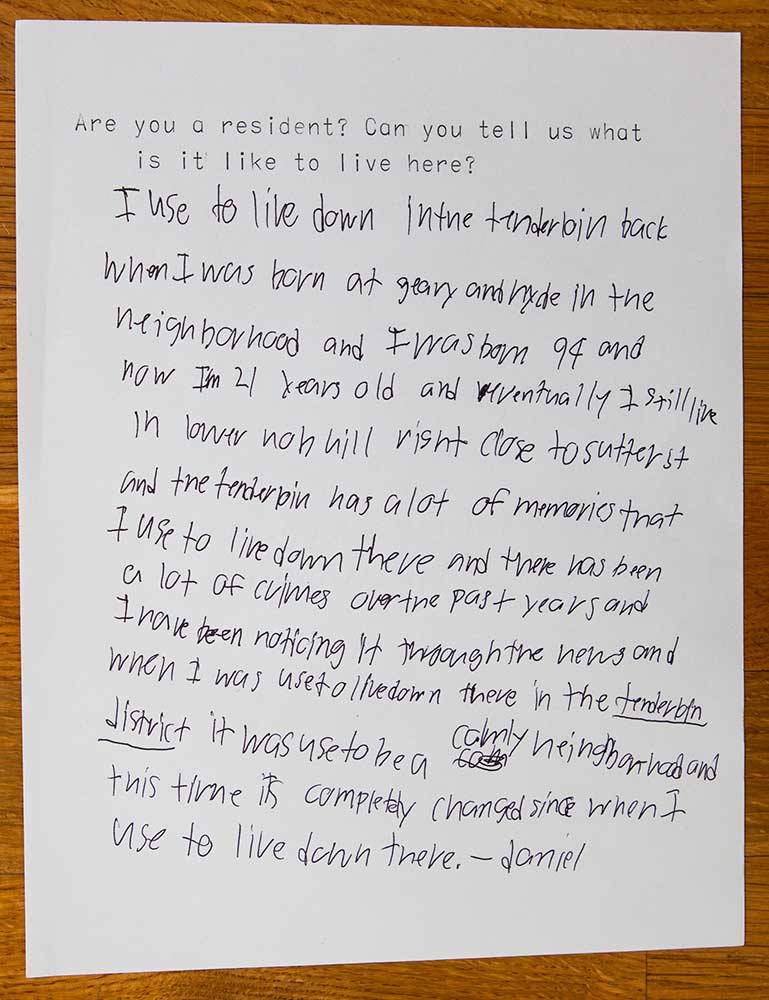 Are you a resident? Can you tell us what
is it like to live here?
I use to live down in the tenderbin back
when I was born at geary and hyde in the
neighborhood and I was born 94 and
now I'm 21 years old and eventually I still live
in lower nob hill right close to sutter st
and the tenderbin has a lot of memories that
I use to live down there and there has been
a lot of crimes over the past years and
I have been noticing it through the news and
when I was use to live down there in the tenderbin
district it was use to be a calmly neingborhood and
this time it's completely changed since when I
use to live down there. – daniel